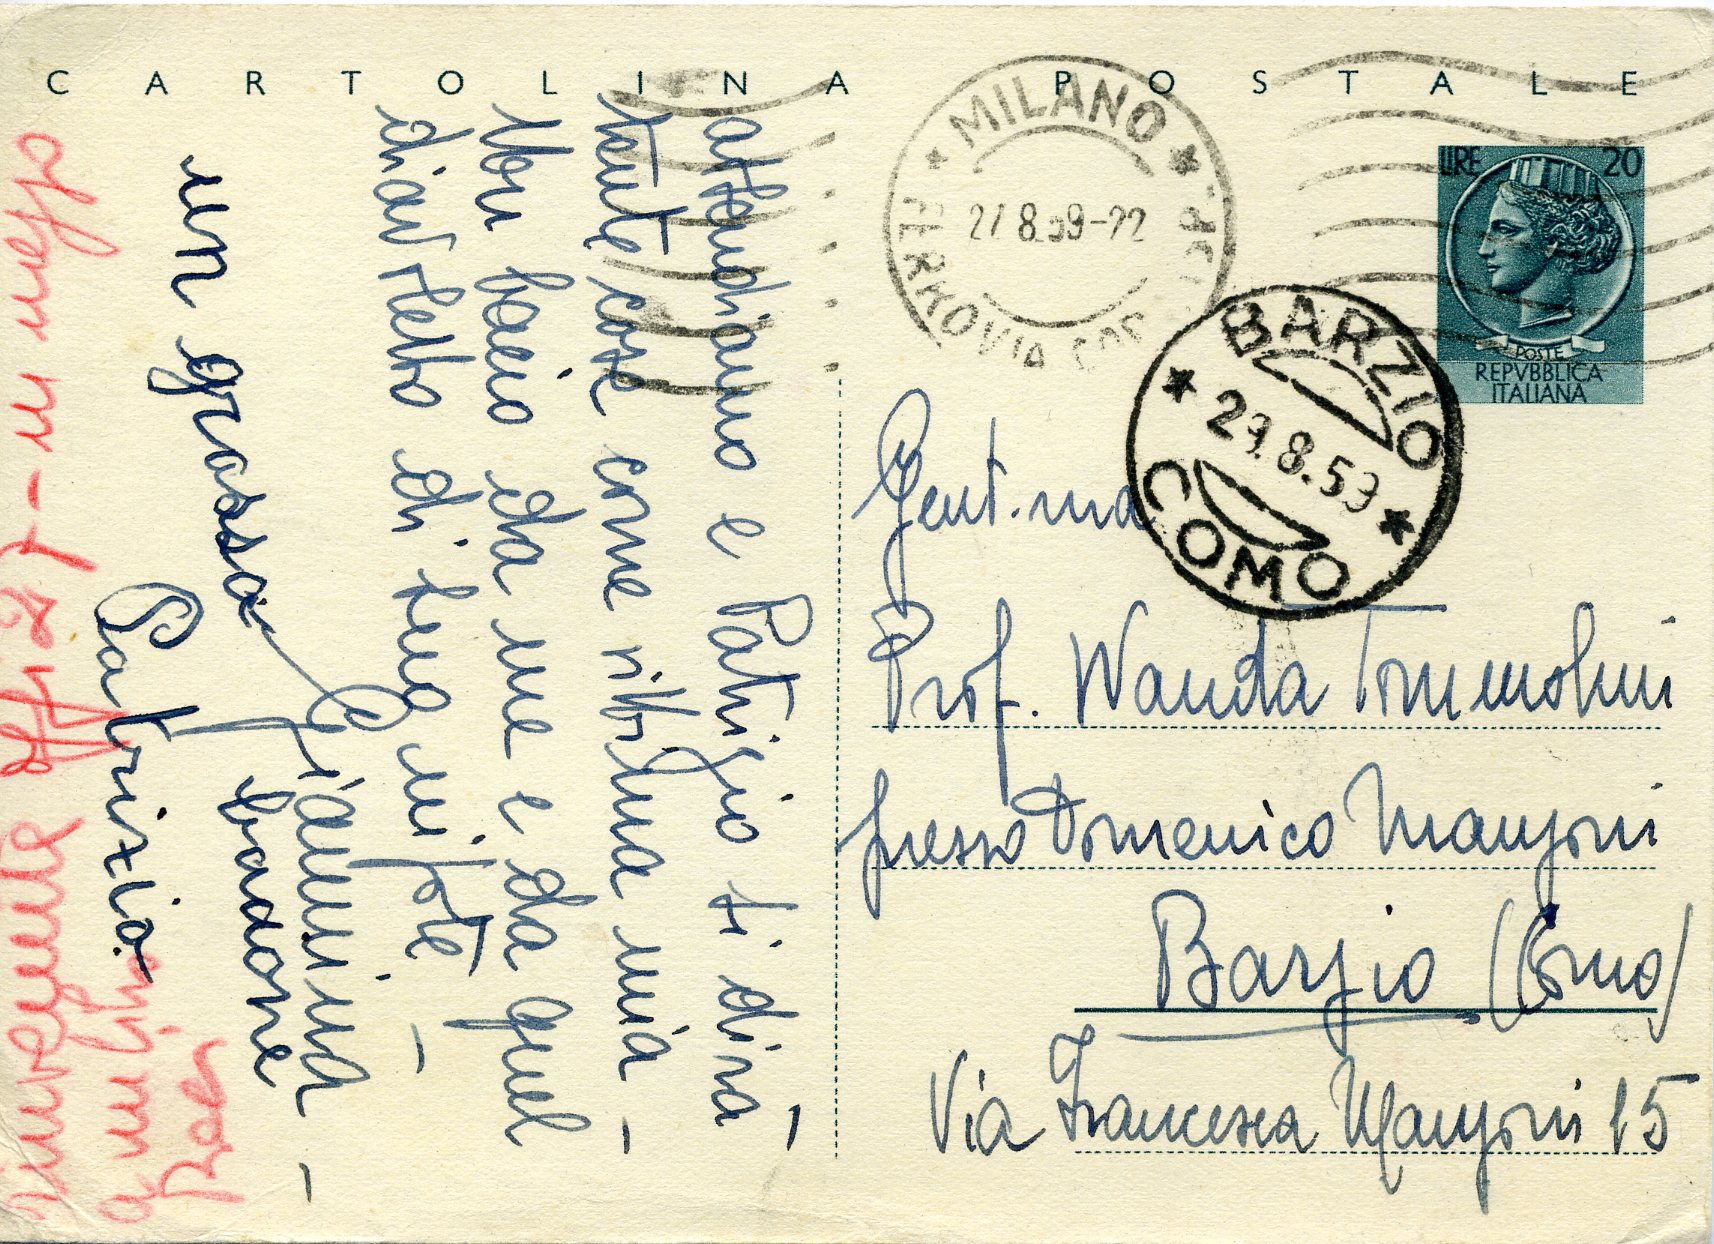 CARTOLINA POSTALE
MILANO
FERROVIA
27.8.59-22
LIRE 20
POSTE
REPVBBLICA
ITALIANA
BARZIO
29.8.59
COMO
Gent.ma
Prof. Wanda Tommolini
presso Domenico Manzoni
Barzio (Como)
Via Francesca Manzoni 15
attendiamo e Patrizio ti dirà
tante cose come ritorna mia –
Un bacio da me e da quel
diavoletto di tuo nipote –
Giannina –
un grosso
bacione
Patrizio